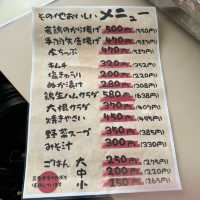 その他おいしいメニュー
若鶏のから揚げ 500円(550円)
手羽先唐揚げ 430円
冷しゃぶ 430円
キムチ 320円(352円)
塩きゅうり 200円(220円)
ぬか漬け 280円(308円)
鶏生ハムサラダ 580円(638円)
大根サラダ 370円(407円)
焼きやさい 450円(495円)
野菜スープ 350円(385円)
みそ汁 300円(330円)
ごはん 大 250円(275円)
中 200円(220円)
小 150円(165円)